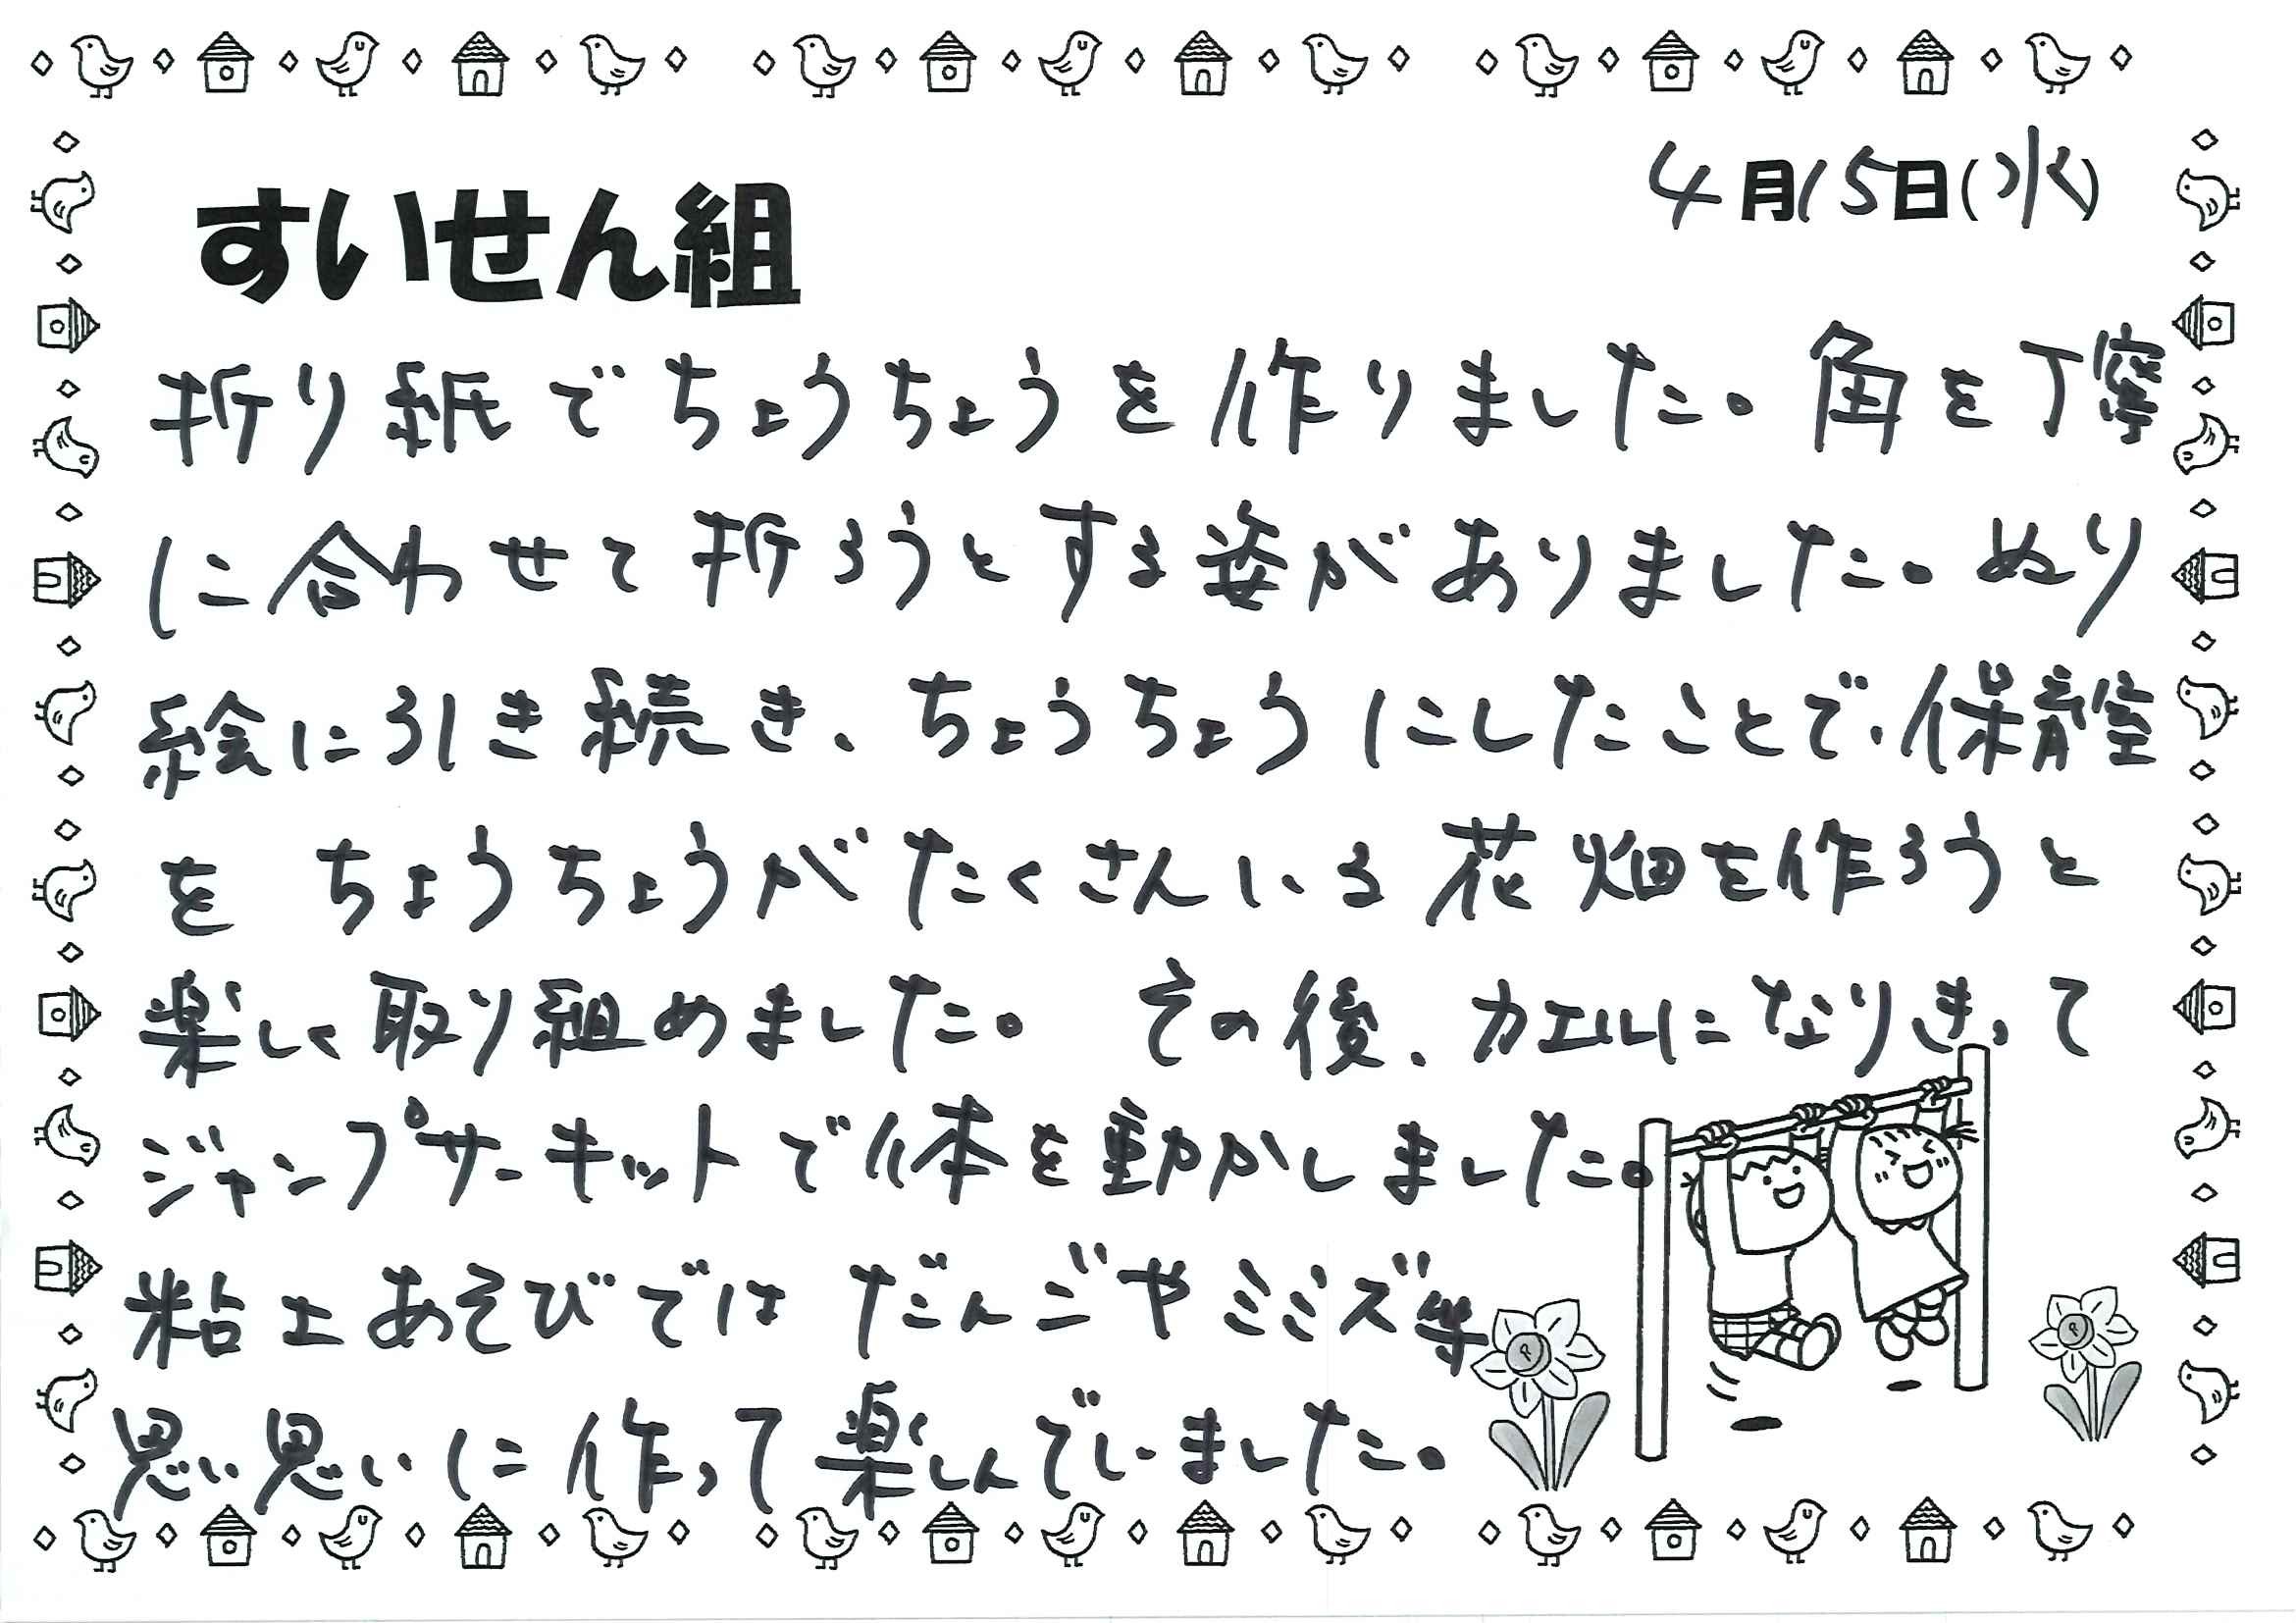 4月15日(水)
すいせん組
折り紙でちょうちょうを作りました。角を丁寧
に合わせて折ろうとする姿がありました。ぬり
絵に引き続き、ちょうちょうにしたことで、保育室
を ちょうちょうがたくさんいる花畑を作ろうと
楽しく取り組めました。 その後、カエルになりきって
ジャンプサーキットで体を動かしました。
粘土あそびでは だんごやミミズ等
思い思いに作って楽しんでいました。